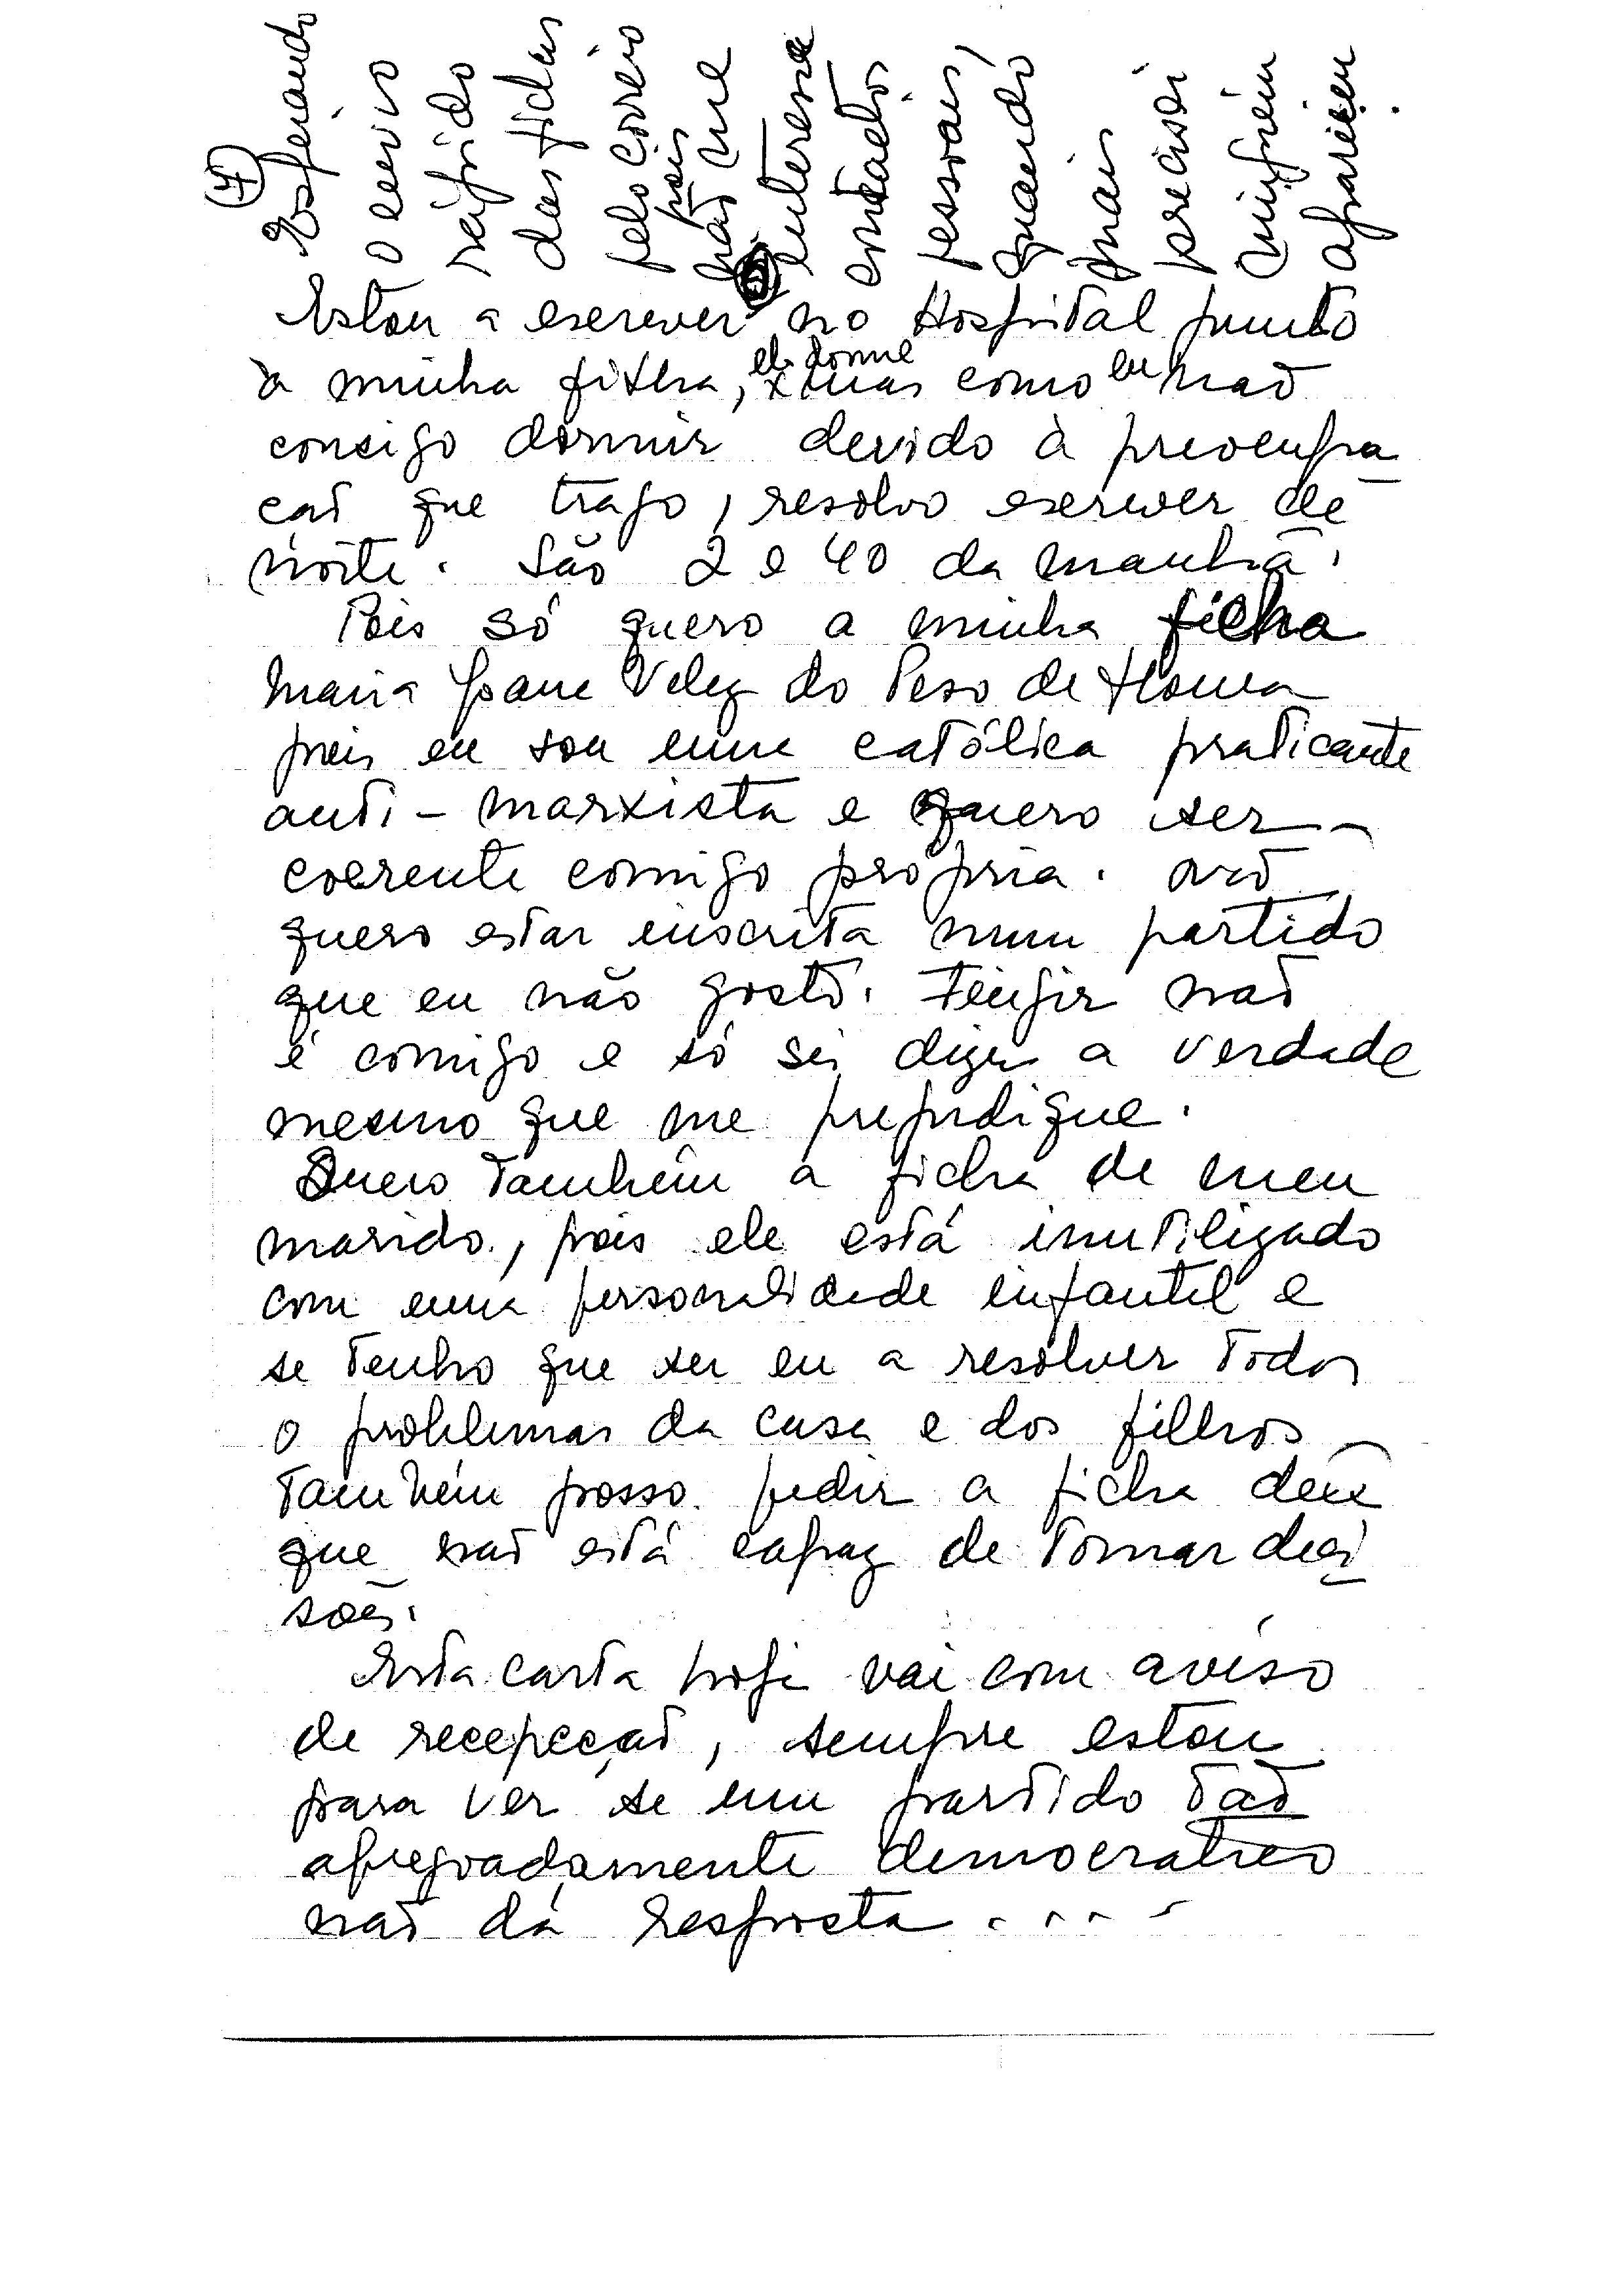 (4)
Esperando
o envio
rápido
das fichas
pelo correio
pois
não me
interessa
contactos
pessoais,
quando
mais
precisei
ninguém
apareceu.
Estou a escrever no Hospital junto
à minha filha, ela dorme mas como eu não
consigo dormir devido à preocupa
ção que trago, resolvo escrever de
noite. São 2 e 40 da manhã.
Pois só quero a minha ficha
Maria Joane Velez do Peso de
pois eu sou uma católica praticante
anti-marxista e quero ser
coerente comigo própria. Não
quero estar inscrita num partido
que eu não gosto. Fingir não
é comigo e só sei dizer a verdade
mesmo que me prejudique.
Quero também a ficha de meu
marido, pois ele está inutilizado
com uma personalidade infantil e
se tenho que ser eu a resolver todos
o problemas da casa e dos filhos
também posso pedir a ficha dele
que não está capaz de tomar deci
sões.
Esta carta hoje vai com aviso
de recepção, sempre estou
para ver se um partido tão
apregoadamente democratico
não dá resposta ....